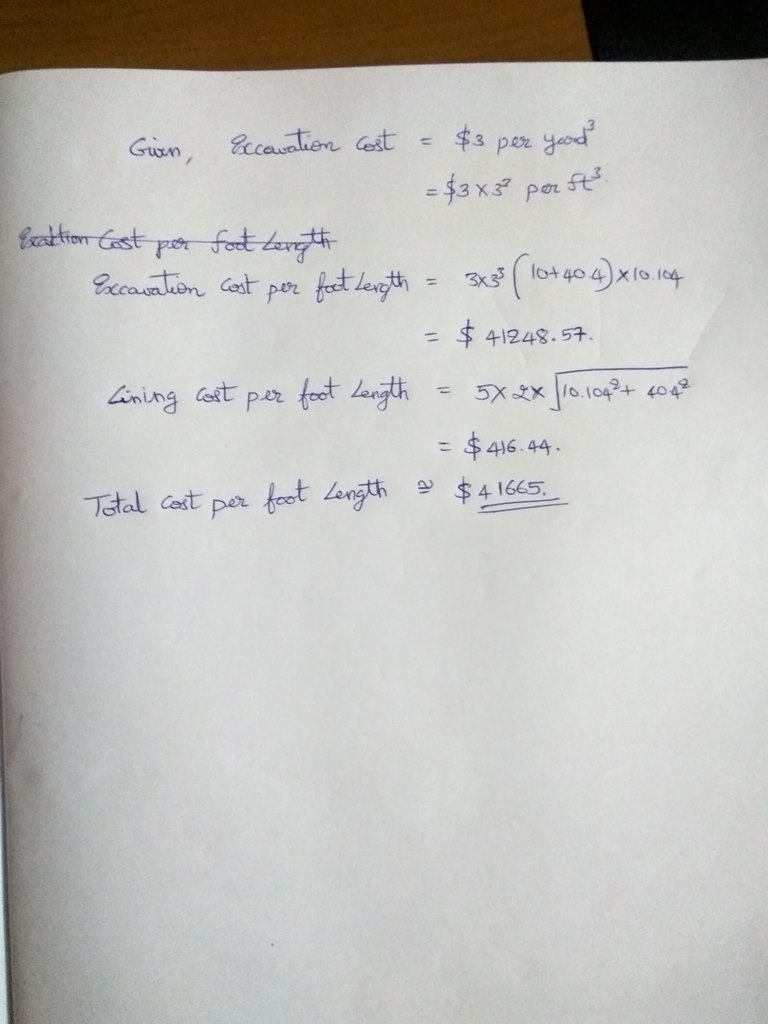 Given, Excavation Cost = $3 per yard³
= $3×3³ per ft³.
Exaltion Cost per foot Length
Excavation Cost per foot Length = 3×3³(10+40.4)×10.104
= $ 41248.57.
Lining Cost per foot Length = 5×2×√10.104²+ 40.4²
= $416.44.
Total Cost per foot Length ≅ $41665.